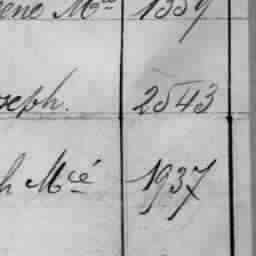 ene Mce 1359
oseph. 2543
h Mcé 1937